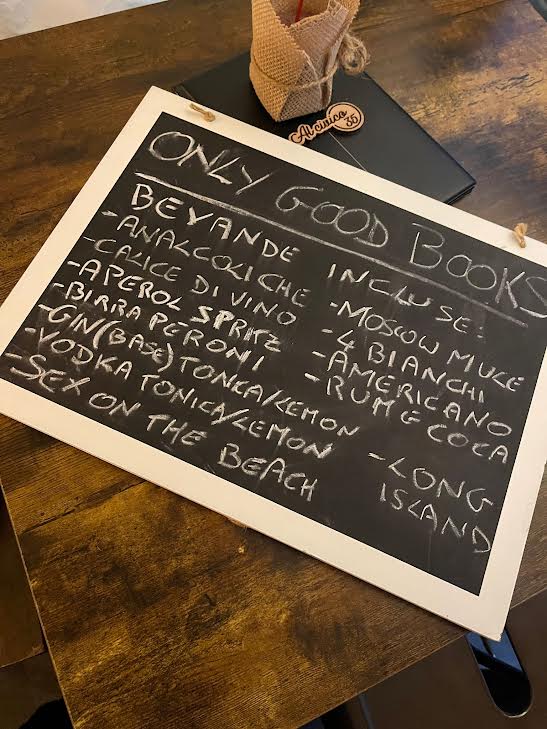 Al civico 35
ONLY GOOD BOOKS
BEVANDE INCLUSE:
-ANALCOLICHE
-CALICE DI VINO
-APEROL SPRITZ
-BIRRA PERONI
-GIN(BASE)TONICA/LEMON
-VODKA TONICA/LEMON
-SEX ON THE BEACH
-MOSCOW MULE
-4 BIANCHI
-AMERICANO
-RUM E COCA
-LONG
ISLAND